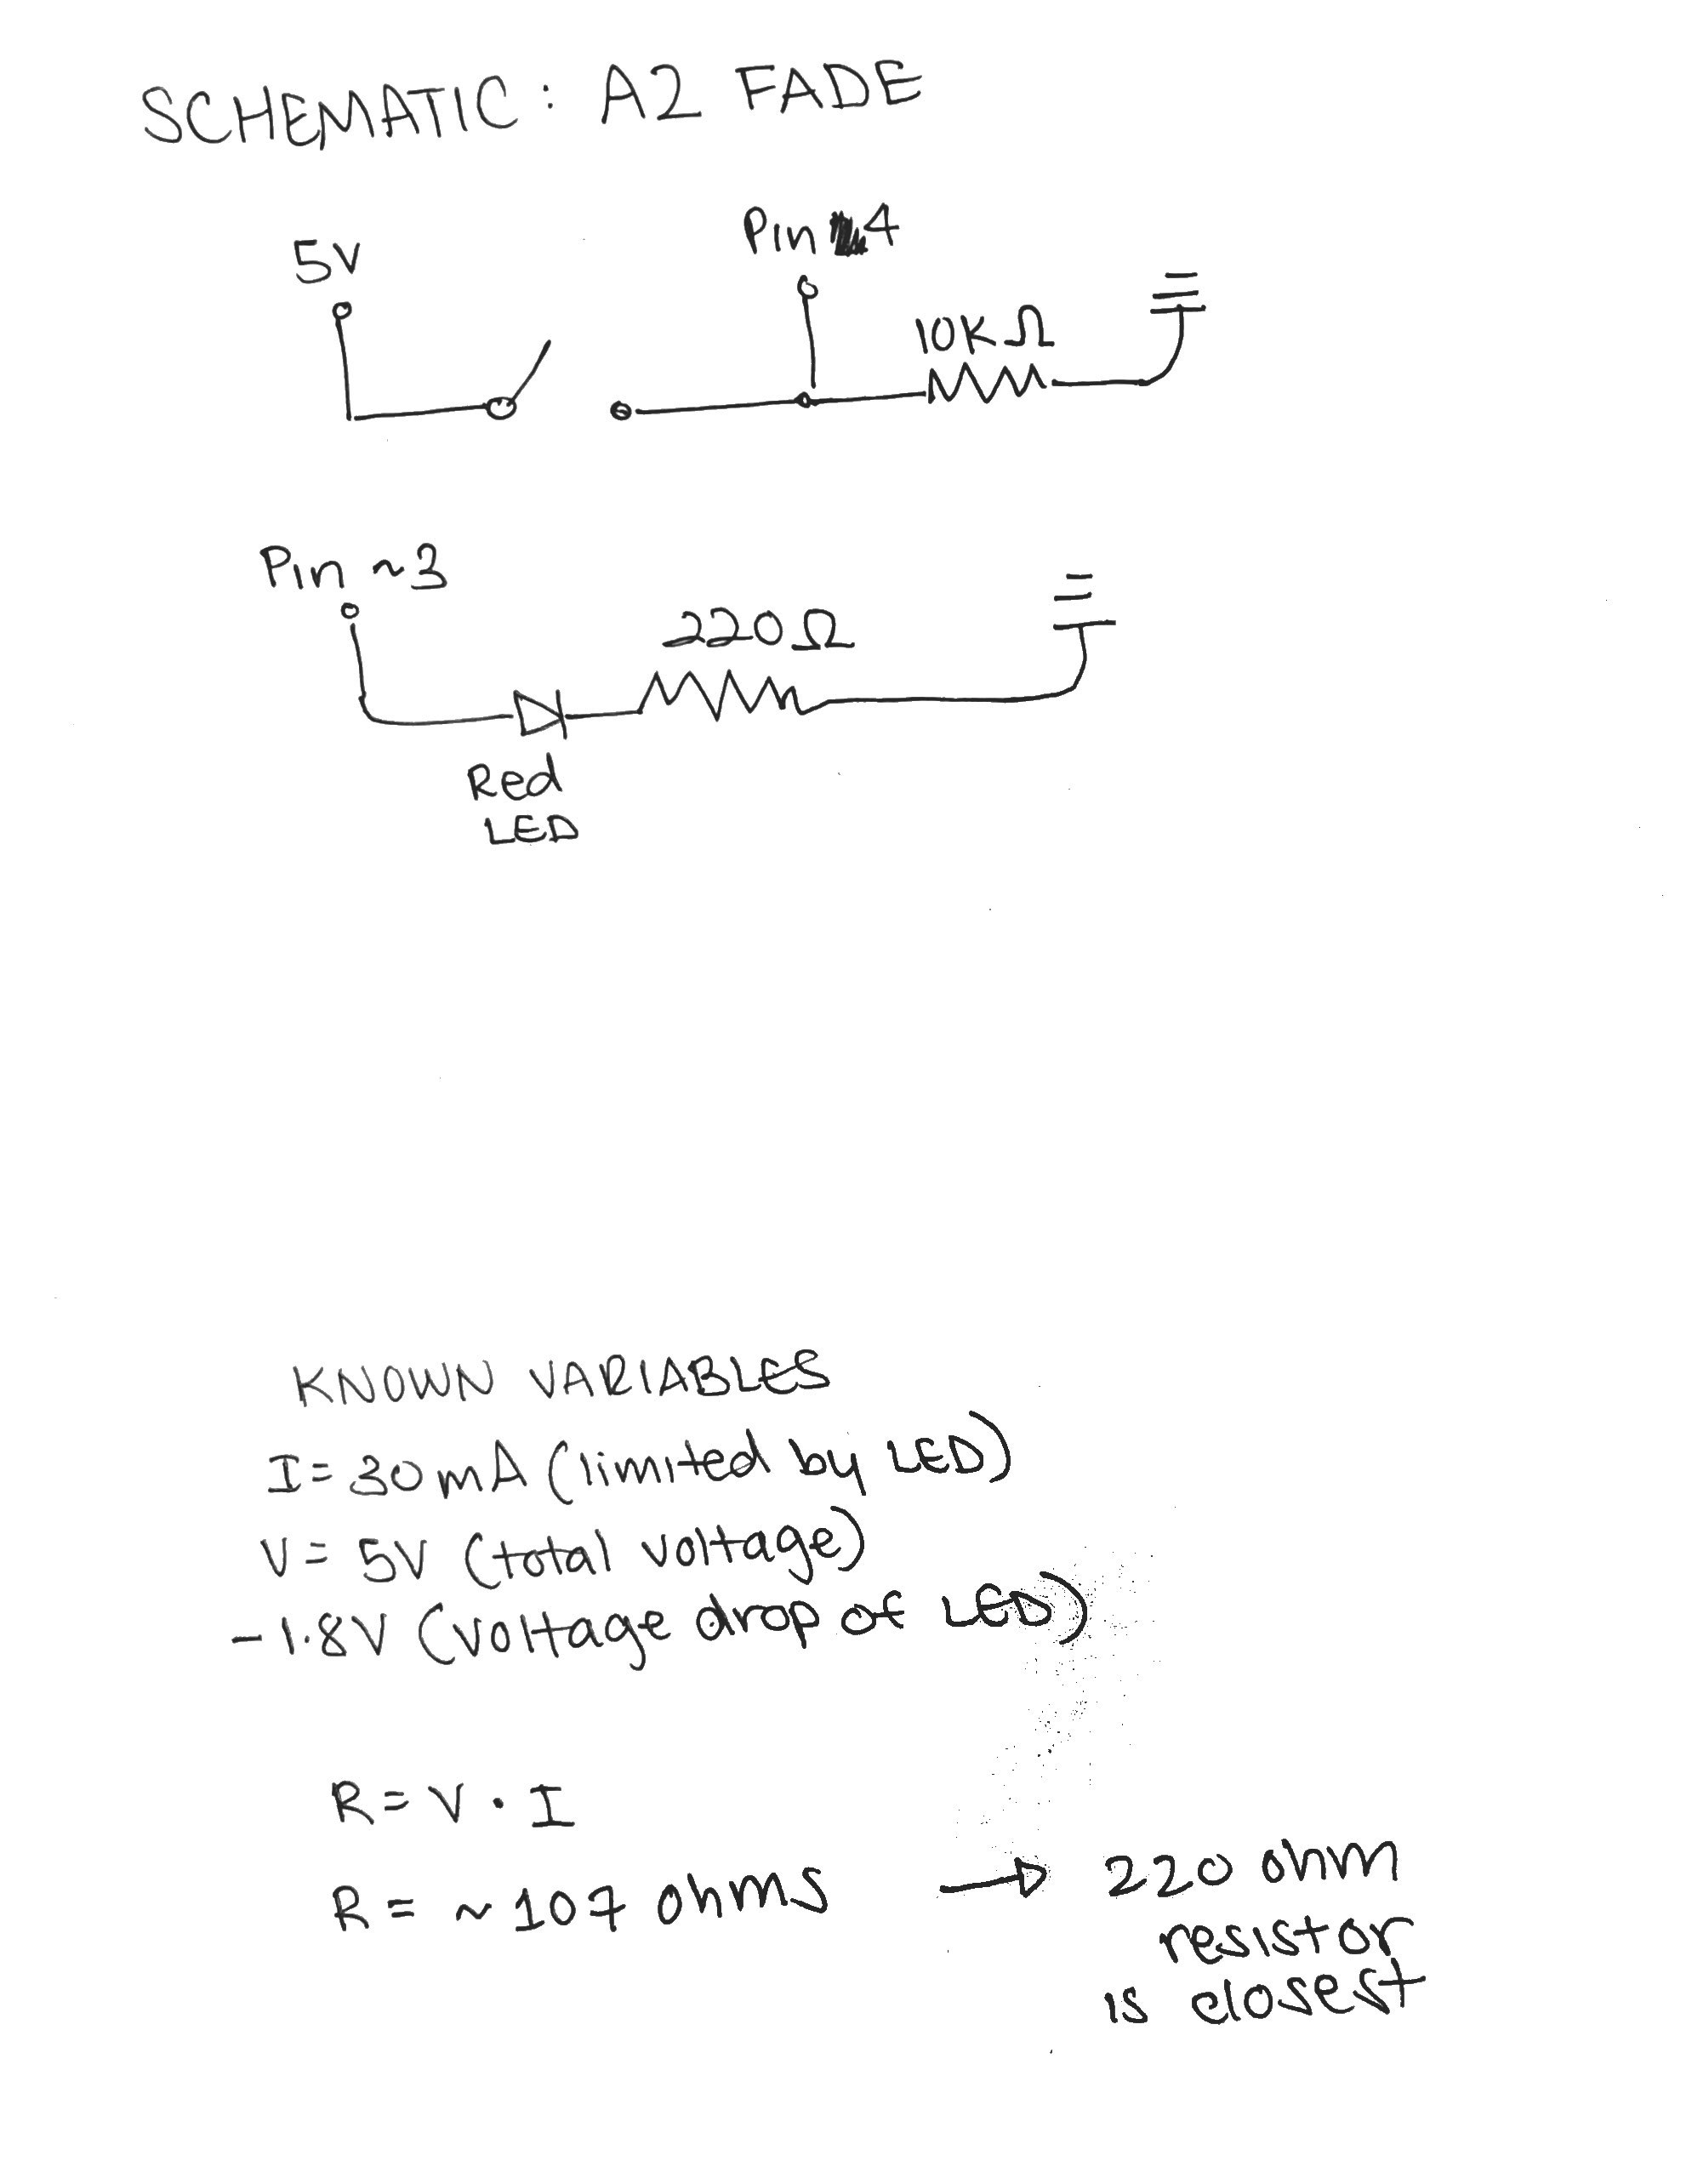 SCHEMATIC: A2 FADE
5V
Pin 4
10KΩ
Pin ~3
220Ω
Red
LED
KNOWN VARIABLES
I = 30mA (limited by LED)
V = 5V (total voltage)
-1.8V (voltage drop of LED)
R = V · I
R = ~107 ohms → 220 ohm
resistor
is closest